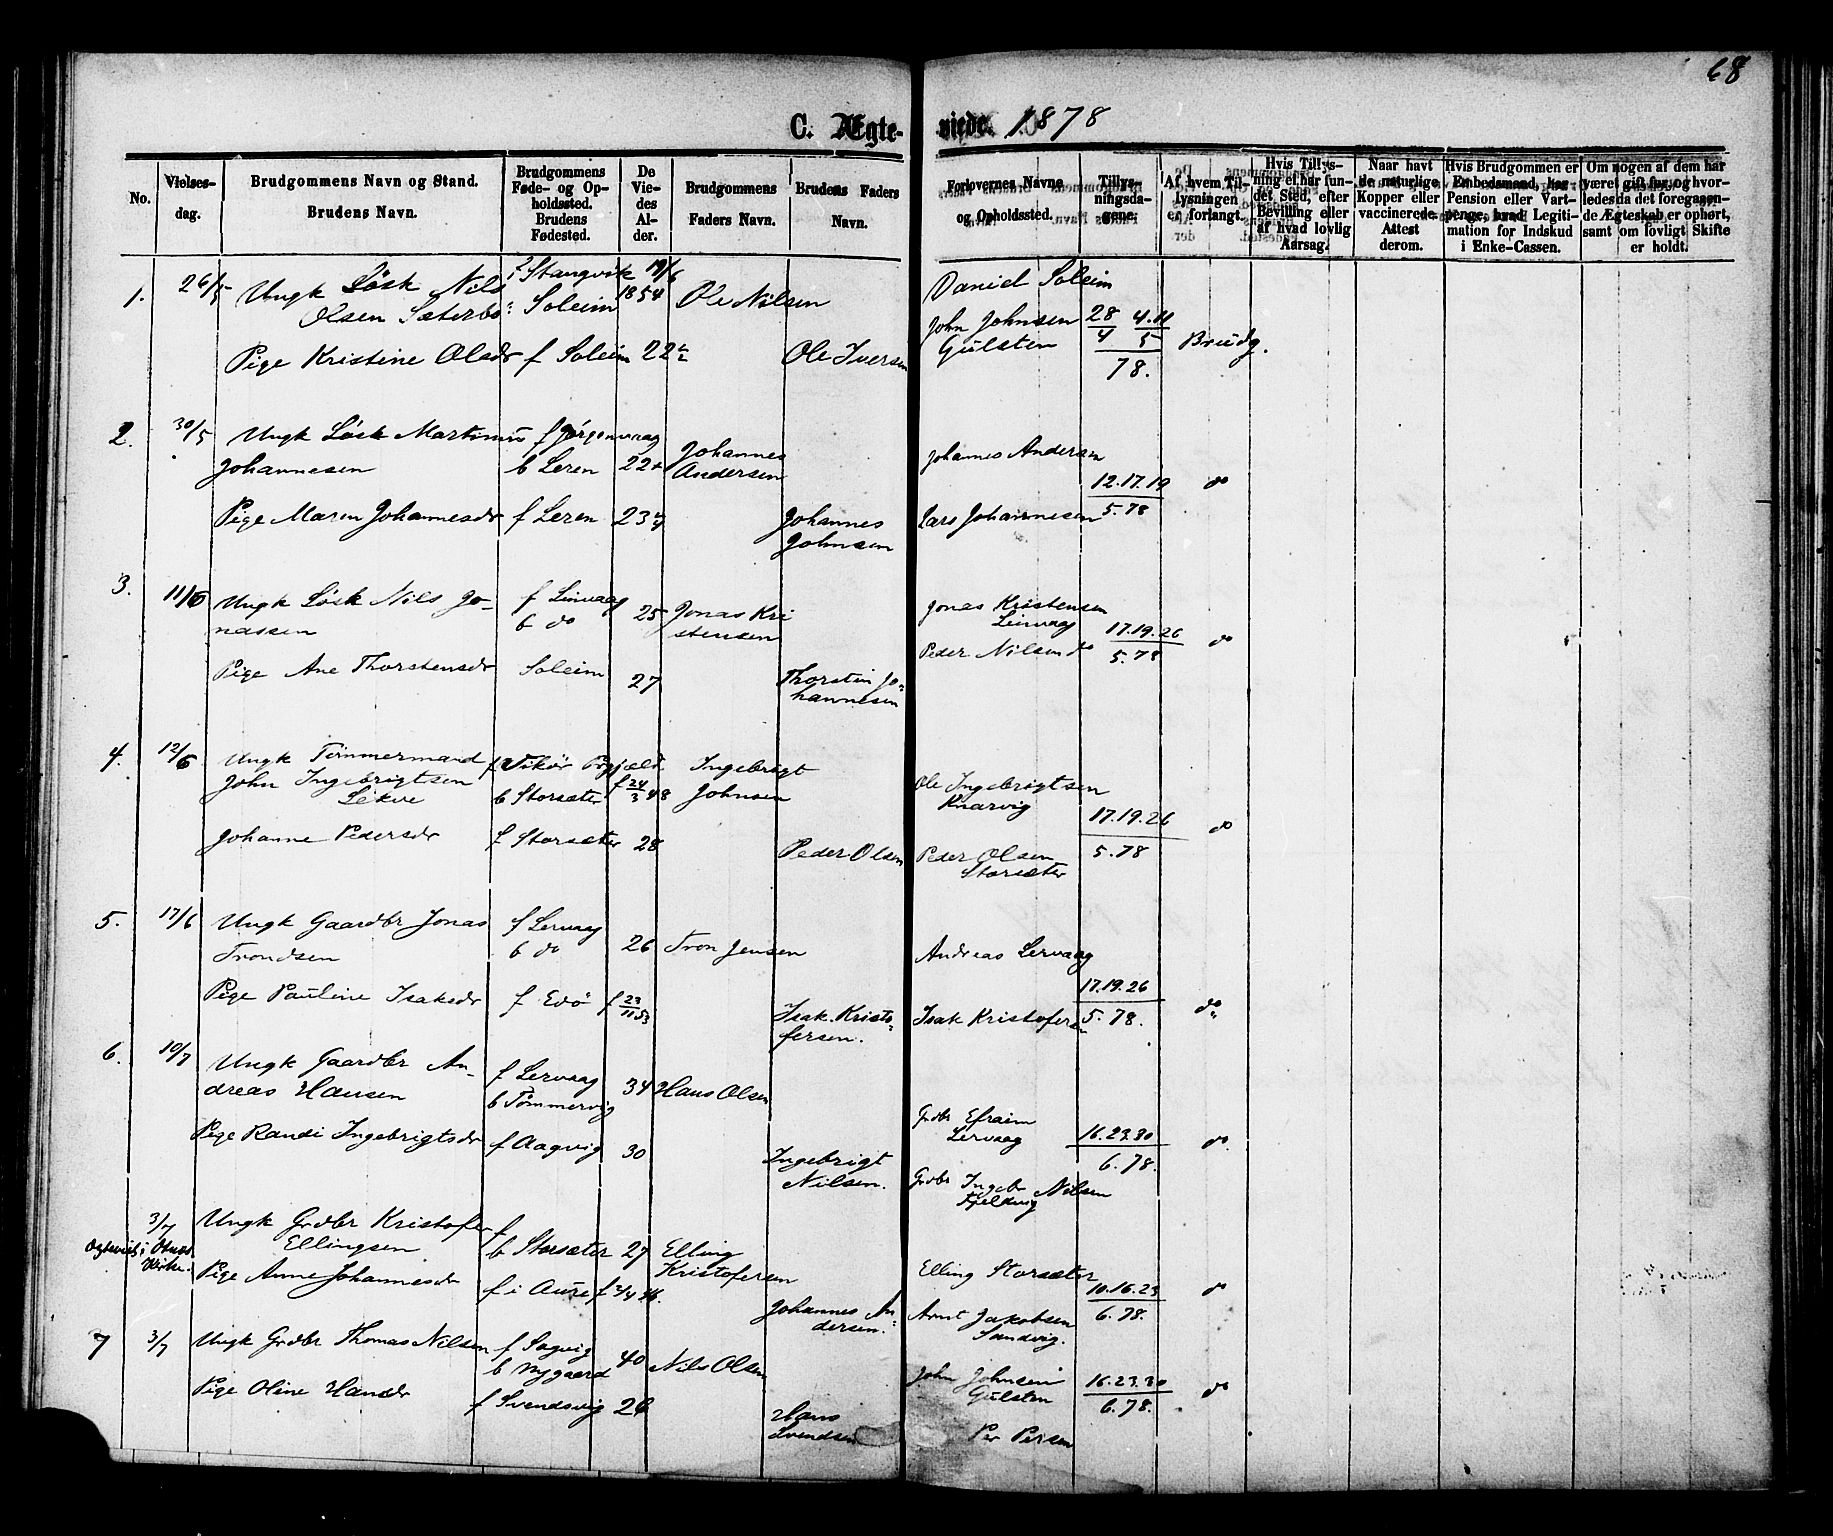 68
C. Ægte- viede. 1878
No.
Vielses-
dag.
Brudgommens Navn og Stand.
Brudens Navn.
Brudgommens
Føde- og Op-
holdssted.
Brudens
Fødested.
De
Vie-
des
Al-
der.
Brudgommens
Faders Navn.
Brudens Faders
Navn.
Forlovernes Navne
og Opholdssted.
Tillys-
ningsda-
gene.
Af hvem Til-
lysningen
er forlangt.
Hvis Tillys-
ning ei har fun-
det Sted, efter
Bevilling eller
af hvad lovlig
Aarsag.
Naar havt
de naturlige
Kopper eller
vaccinerede.
Attest
derom.
Hvis Brudgommen er
Embedsmand, har
Pension eller Vart-
penge, hvad Legiti-
mation for Indskud
i Enke-Cassen.
Om nogen af dem har
været gift før, og hvor-
ledes da det foregaaen-
de Ægteskab er ophørt,
samt om lovligt Skifte
er holdt.
1. 26/5 Ungk Løsk Nils Stangvik 19/6
Olsen Sæterbø Soleim 1854 Ole Nilsen
Pige Kristine Olsdr f Soleim 22 Ole Iversen
Daniel Soleim
John Johnsen 28/4 4.11/5
Gulsten 78. Brudg.
2. 30/5 Ungk Løsk Martinus f Jørgenvaag
Johannesen b Leren 22 Johannes
Andersen
Pige Maren Johannesdr f Leren 23 Johannes
Johnsen
Johannes Andersen
12.17.19 do
Lars Johannesen 5.78
3. 11/6 Ungk Løsk Nils Jo-
nassen f Leirvaag
b do 25 Jonas Kri
stensen
Pige Ane Thorstensdr Soleim 27 Thorstin Jo-
hannesen
Jonas Kristensen
Leirvaag 17.19.26 do
Peder Nilsen do 5.78
4. 12/6 Ungk Tømmermand f Vikør Pgjæld Ingebrigt
John Ingebrigtsen f 24/3 48 Johnsen
Lekve b Storsæter
Johanne Pedersdr f Storsæter 28 Peder Olsen
Ole Ingebrigtsen
Knarvig 17.19.26 do
Peder Olsen 5.78
Storsæter
5. 17/6 Ungk Gaardbr Jonas f Lervaag
Trondsen b do 26 Tron Jensen
Pige Pauline Isaksdr f Edø f 23/11 53 Isak Kristo-
fersen.
Andreas Lervaag
17.19.26 do
Isak Kristofersen 5.78.
6. 10/7 Ungk Gaardbr An-
dreas Hansen f Lervaag
b Tømmervig 34 Hans Olsen
Pige Randi Ingebrigtsdr f Aagvig 30 Ingebrigt
Nilsen.
Grdbr Efraim
Lervaag 16.23.30 do
6.78.
Grdbr Ingebr Nilsen
Fjeldvig
3/7 Ungk Grdbr Kristofer f
Ellingsen b Storsæter 27 Elling
Kristofersen
Pige Anne Johannesdr f i Aure Johannes An
dersen.
Elling Storsæter
10.16.23 do
Arnt Jakobsen 6.78.
Sandvig.
7 3/7 Ungk Grdbr Thomas Nilsen f Sagvig
b Nygaard 40 Nils Olsen
Pige Oline Hansdr f Svendsvig 26 Hans
Svendsen
John Johnsen 16.23.30 do
Gulsten 6.78.
Per Persen